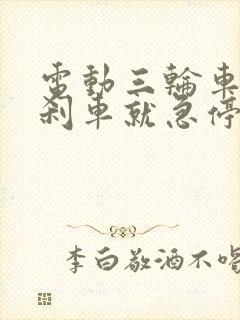 電動三輪車
刹車就急停
李白敬酒不喝